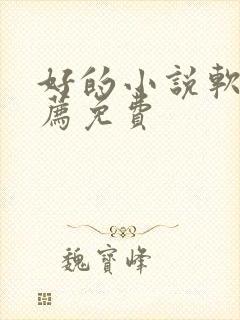 好的小說軟
薦免費
魏寶峰